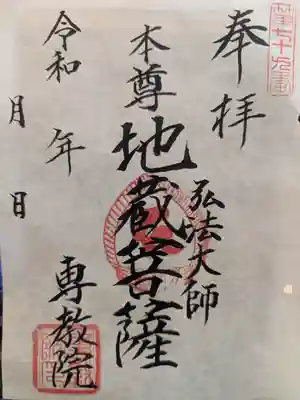 奉拝
第七十九番
弘法大師
本尊
地蔵菩薩
令和 年
月 日
専教院